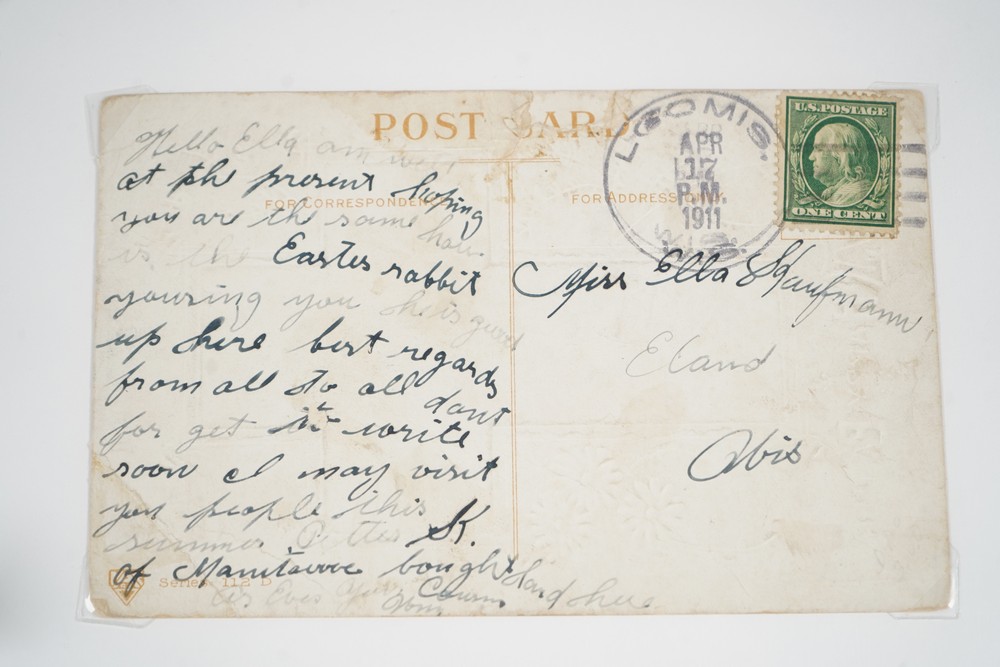 POST CARD
LOOMIS.
APR
17
P.M.
1911
WIS.
U.S. POSTAGE
ONE CENT
FOR CORRESPONDENCE
FOR ADDRESS ONLY
Hello Ella am well
at the present hoping
you are the same how
is the Easter rabbit
yousing you she is good
up here best regards
from all to all dont
for get to write
soon I may visit
you people this
summer K.
of Manitowoc bought land here
as Ever Your
Series 112 D
Miss Ella Kaufmann
Eland
Wis